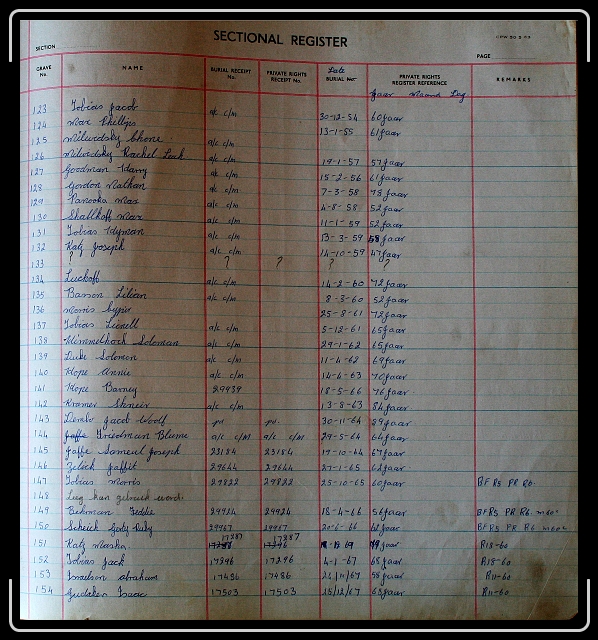 SECTIONAL REGISTER
SECTION
PAGE
GRAVE No. NAME BURIAL RECEIPT No. PRIVATE RIGHTS RECEIPT No. Date BURIAL No. PRIVATE RIGHTS REGISTER REFERENCE REMARKS
Jaar Maand Dag
123 Tobias Jacob a/c c/m 30-12-54 60 Jaar
124 Max Phillips 13-1-55 61 Jaar
125 Milwidsky Chone a/c c/m
126 Milwidsky Rachel Leah a/c c/m 19-1-57 57 Jaar
127 Goodman Harry a/c c/m 15-2-56 61 Jaar
128 Gordon Nathan a/c c/m 7-3-58 78 Jaar
129 Max a/c c/m 4-8-58 52 Jaar
130 Max a/c c/m 11-1-59 52 Jaar
131 Tobias Hyman a/c c/m 13-3-59 58 Jaar
132 Katz Joseph a/c c/m 14-10-59 47 Jaar
133 ? ? ? ? ?
134 Luckoff a/c c/m 14-2-60 72 Jaar
135 Barron Lilian a/c c/m 8-3-60 52 Jaar
136 Morris 25-8-61 72 Jaar
137 Tobias a/c c/m 5-12-61 65 Jaar
138 Himmelhoch Soloman a/c c/m 29-1-62 65 Jaar
139 Solomon a/c c/m 11-4-62 69 Jaar
140 Kope Annie a/c c/m 14-4-63 70 Jaar
141 Kope Barney 29939 18-5-66 76 Jaar
142 Kramer Shneir a/c c/m 13-8-63 84 Jaar
143 Dembo Jacob Woolf pv. pv. 30-11-64 89 Jaar
144 Jaffe Friedman Blume a/c c/m a/c c/m 29-5-64 64 Jaar
145 Jaffe Samuel Joseph 23184 23184 19-10-64 67 Jaar
146 Zelick Jaffit 29644 29644 27-1-65 62 Jaar
147 Tobias Morris 29822 29822 25-10-65 60 Jaar BF R5 PR R0.
148 Lug kan gebruik word
149 Bekman Teddie 29924 29924 18-4-66 56 Jaar BF R5 PR R6.
150 Scheick 29967 29967 20-6-66 Jaar BF R5 PR R6
151 Katz Masha 17287 17287 Jaar R18-60
152 Tobias Jack 17296 17296 4-1-67 65 Jaar R18-60
153 Jonathan Abraham 17486 17486 21/11/67 58 Jaar R11-60
154 Isaac 17503 17503 25/12/67 65 Jaar R11-60